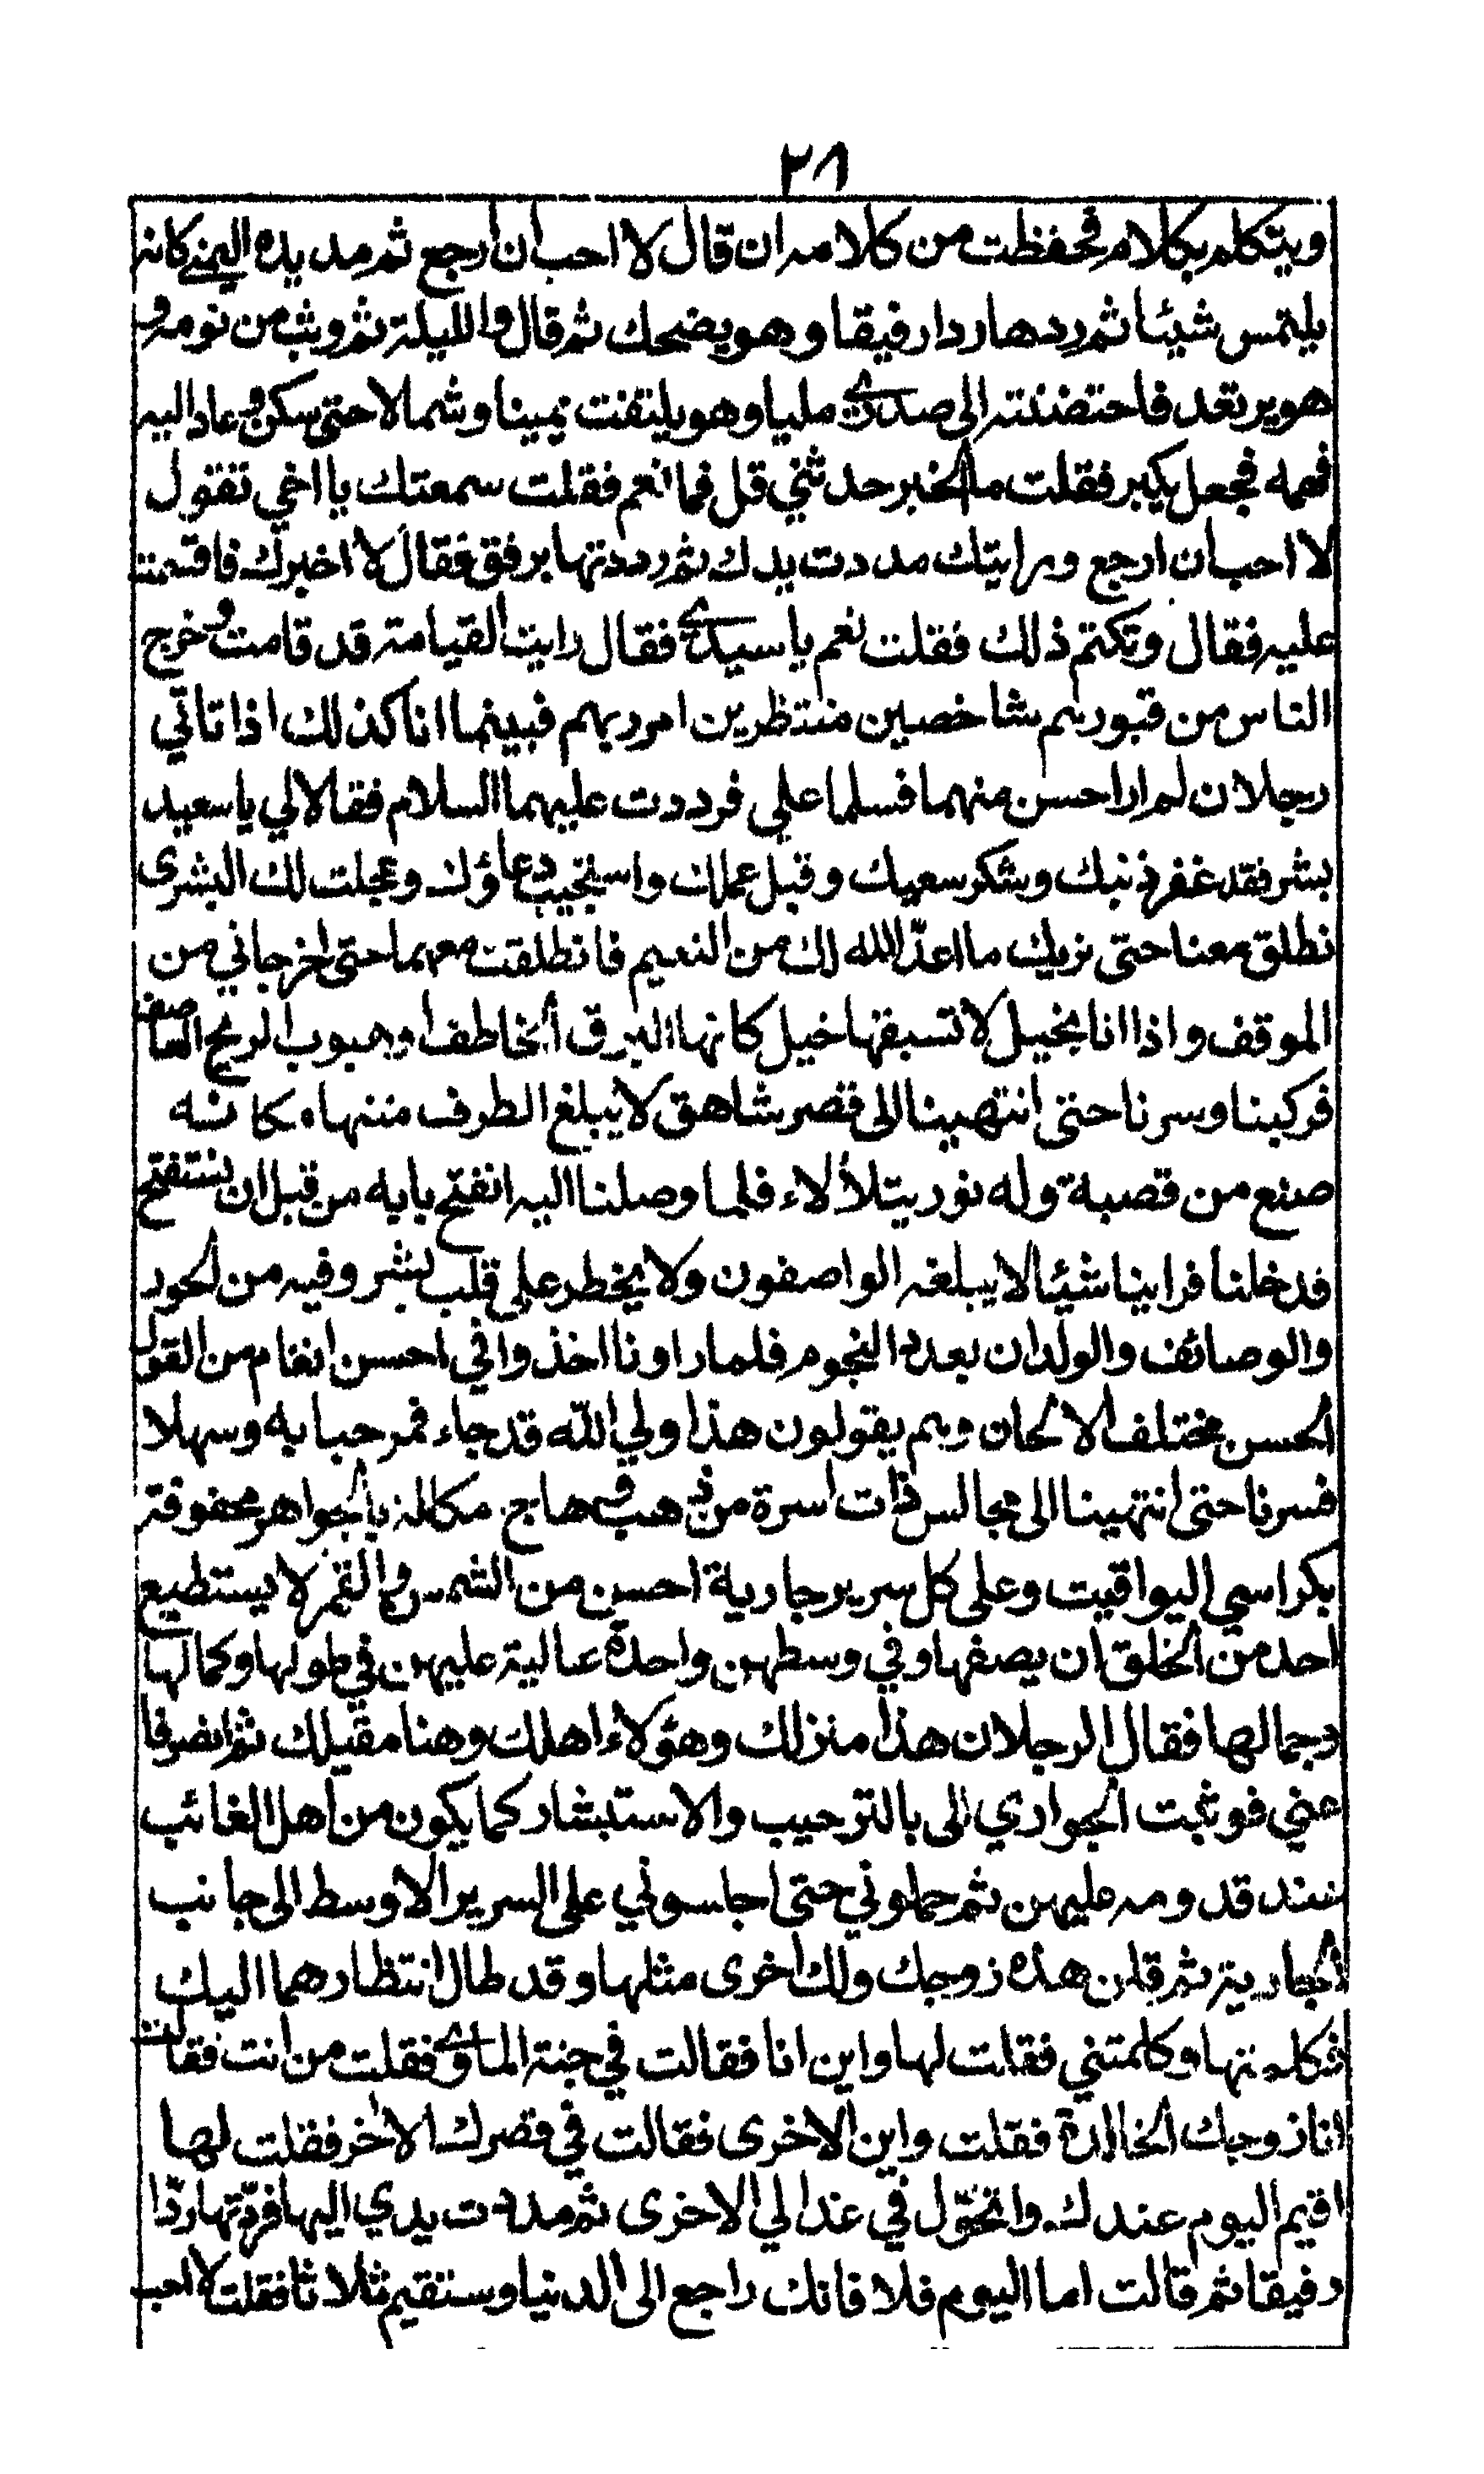 ٢٨
ويتكلم بكلام فحفظت من كلامه ان قال لا احب ان ارجع ثم مد يده اليمنى كانه
يلتمس شيئا ثم ردها ردا رفيقا وهو يضحك ثم قال والليلة ثم وثب من نومه و
هو يرتعد فاحتضنته الى صدري مليا وهو يلتفت يمينا وشمالا حتى سكن وعاد اليه
فهمه فجعل يكبر فقلت ما الخبر حدثني قل فما نعم فقلت سمعتك يا اخي تقول
لا احب ان ارجع ورايتك مددت يدك ثم رددتها برفق فقال لا اخبرك فاقسمت
عليه فقال وتكتم ذلك فقلت نعم يا سيدي فقال رايت القيامة قد قامت وخرج
الناس من قبورهم شاخصين منتظرين امر ربهم فبينما انا كذلك اذا تاتي
رجلان لم ار احسن منهما فسلما علي فرددت عليهما السلام فقالا لي يا سعيد
بشر فقد غفر ذنبك وشكر سعيك وقبل عملك واستجيب دعاؤك وعجلت لك البشرى
نطلق معنا حتى نريك ما اعدّ الله لك من النعيم فانطلقت معهما حتى اخرجاني من
الموقف واذا انا بخيل لا تسبقها خيل كانها البرق الخاطف او هبوب الريح العاصف
فركبنا وسرنا حتى انتهينا الى قصر شاهق لا يبلغ الطرف منتهاه كانه
صنع من قصبة وله نور يتلألاء فلما وصلنا اليه انفتح بابه من قبل ان نستفتح
فدخلنا فراينا شيئا لا يبلغه الواصفون ولا يخطر على قلب بشر وفيه من الحور
والوصائف والولدان بعدد النجوم فلما راونا اخذوا في احسن انغام من القول
الحسن مختلف الالحان وهم يقولون هذا ولي الله قد جاء فمرحبا به وسهلا
فسرنا حتى انتهينا الى مجالس ذات اسرة من ذهب مكللة بالجواهر محفوفة
بكراسي اليواقيت وعلى كل سرير جارية احسن من الشمس والقمر لا يستطيع
احد من الخلق ان يصفها وفي وسطهن واحدة عالية عليهن في طولها وكمالها
وجمالها فقال الرجلان هذا منزلك وهؤلاء اهلك وهنا مقيلك ثم انصرفا
عني فوثبت الجواري الى بالترحيب والاستبشار كما يكون من اهل الغائب
عند قدومه عليهن ثم حملوني حتى اجلسوني على السرير الاوسط الى جانب
الجارية ثم قلن هذه زوجك ولك اخرى مثلها وقد طال انتظارهما اليك
فكلمتها وكلمتني فقلت لها واين انا فقالت في جنة الماوى فقلت من انت فقالت
انا زوجك الخالدة فقلت واين الاخرى فقالت في قصرك الاخر فقلت لها
اقيم اليوم عندك واتحوّل في غد الي الاخرى ثم مددت يدي اليها فردّتها ردّا
رفيقا ثم قالت اما اليوم فلا فانك راجع الى الدنيا وستقيم ثلاثا فقلت لا احب